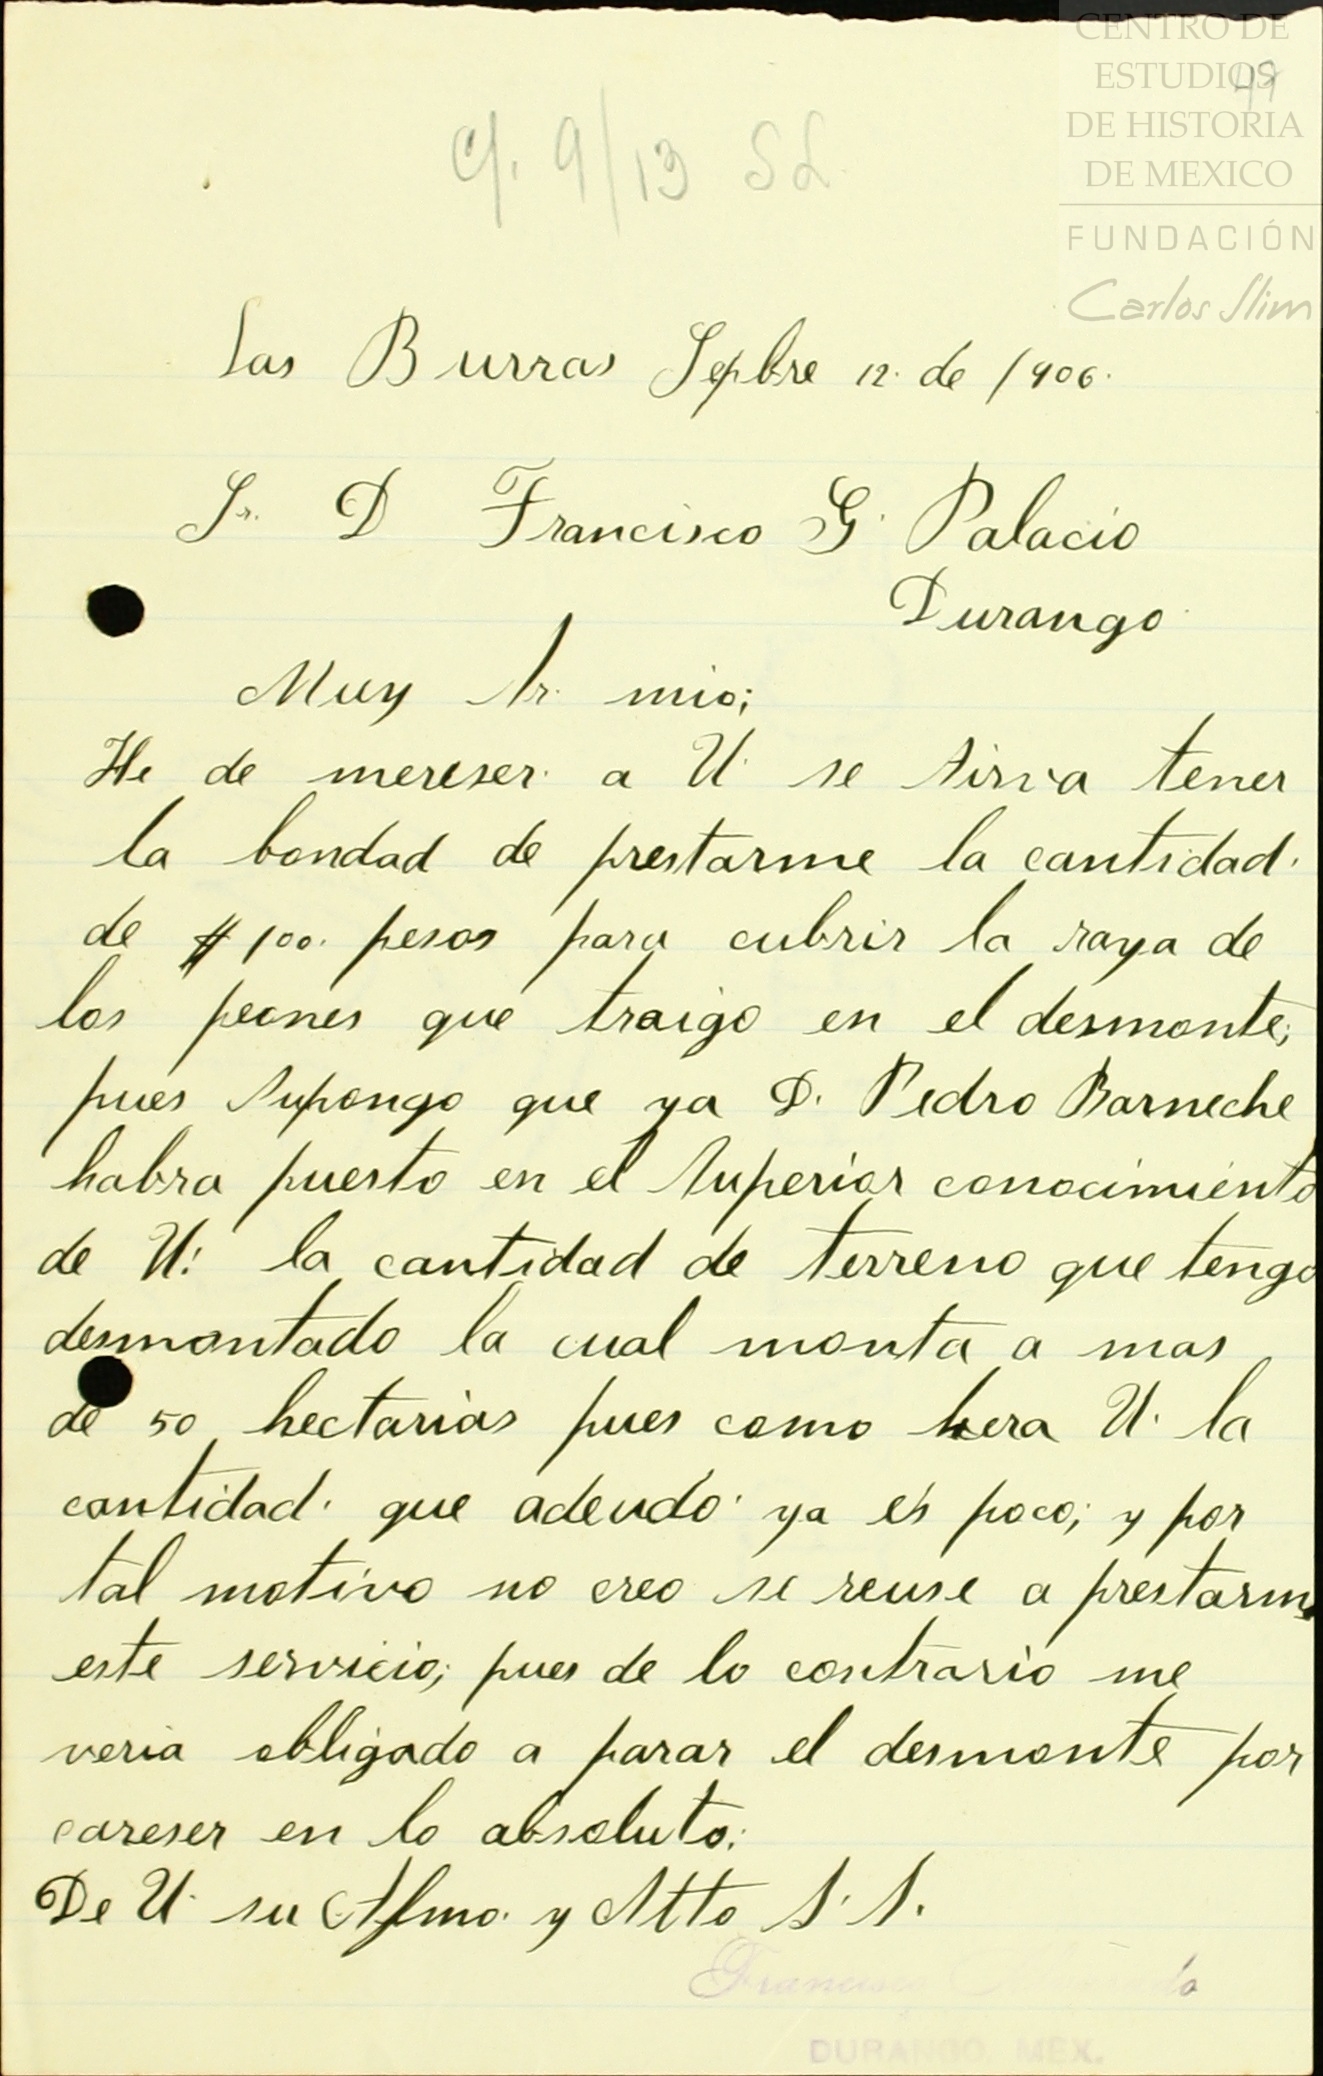 CENTRO DE
ESTUDIOS
DE HISTORIA
DE MEXICO
FUNDACIÓN
Carlos Slim
49
C/. 9/13 SL
Las Burras Sepbre 12. de 1906.
Sr. D Francisco G. Palacio
Durango.
Muy Sr. mio;
He de mereser a U. se sirva tener
la bondad de prestarme la cantidad.
de $100. pesos para cubrir la raya de
los peones que traigo en el desmonte;
pues supongo que ya D. Pedro Barneche
habra puesto en el superior conocimiento
de U: la cantidad de terreno que tengo
desmontado la cual monta a mas
de 50 hectarias pues como hera U. la
cantidad. que adeudo. ya es poco; y por
tal motivo no creo se reuse a prestarme
este servicio; pues de lo contrario me
veria obligado a parar el desmonte por
careser en lo absoluto.
De U. su Afmo. y Atto S. S.
Francisco
DURANGO, MEX.